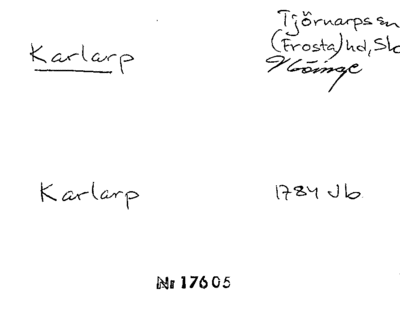 Karlarp
Tjörnarps sn
(Frosta) hd, Sk
Höinge
Karlarp
1784 Jb
Nr 17605